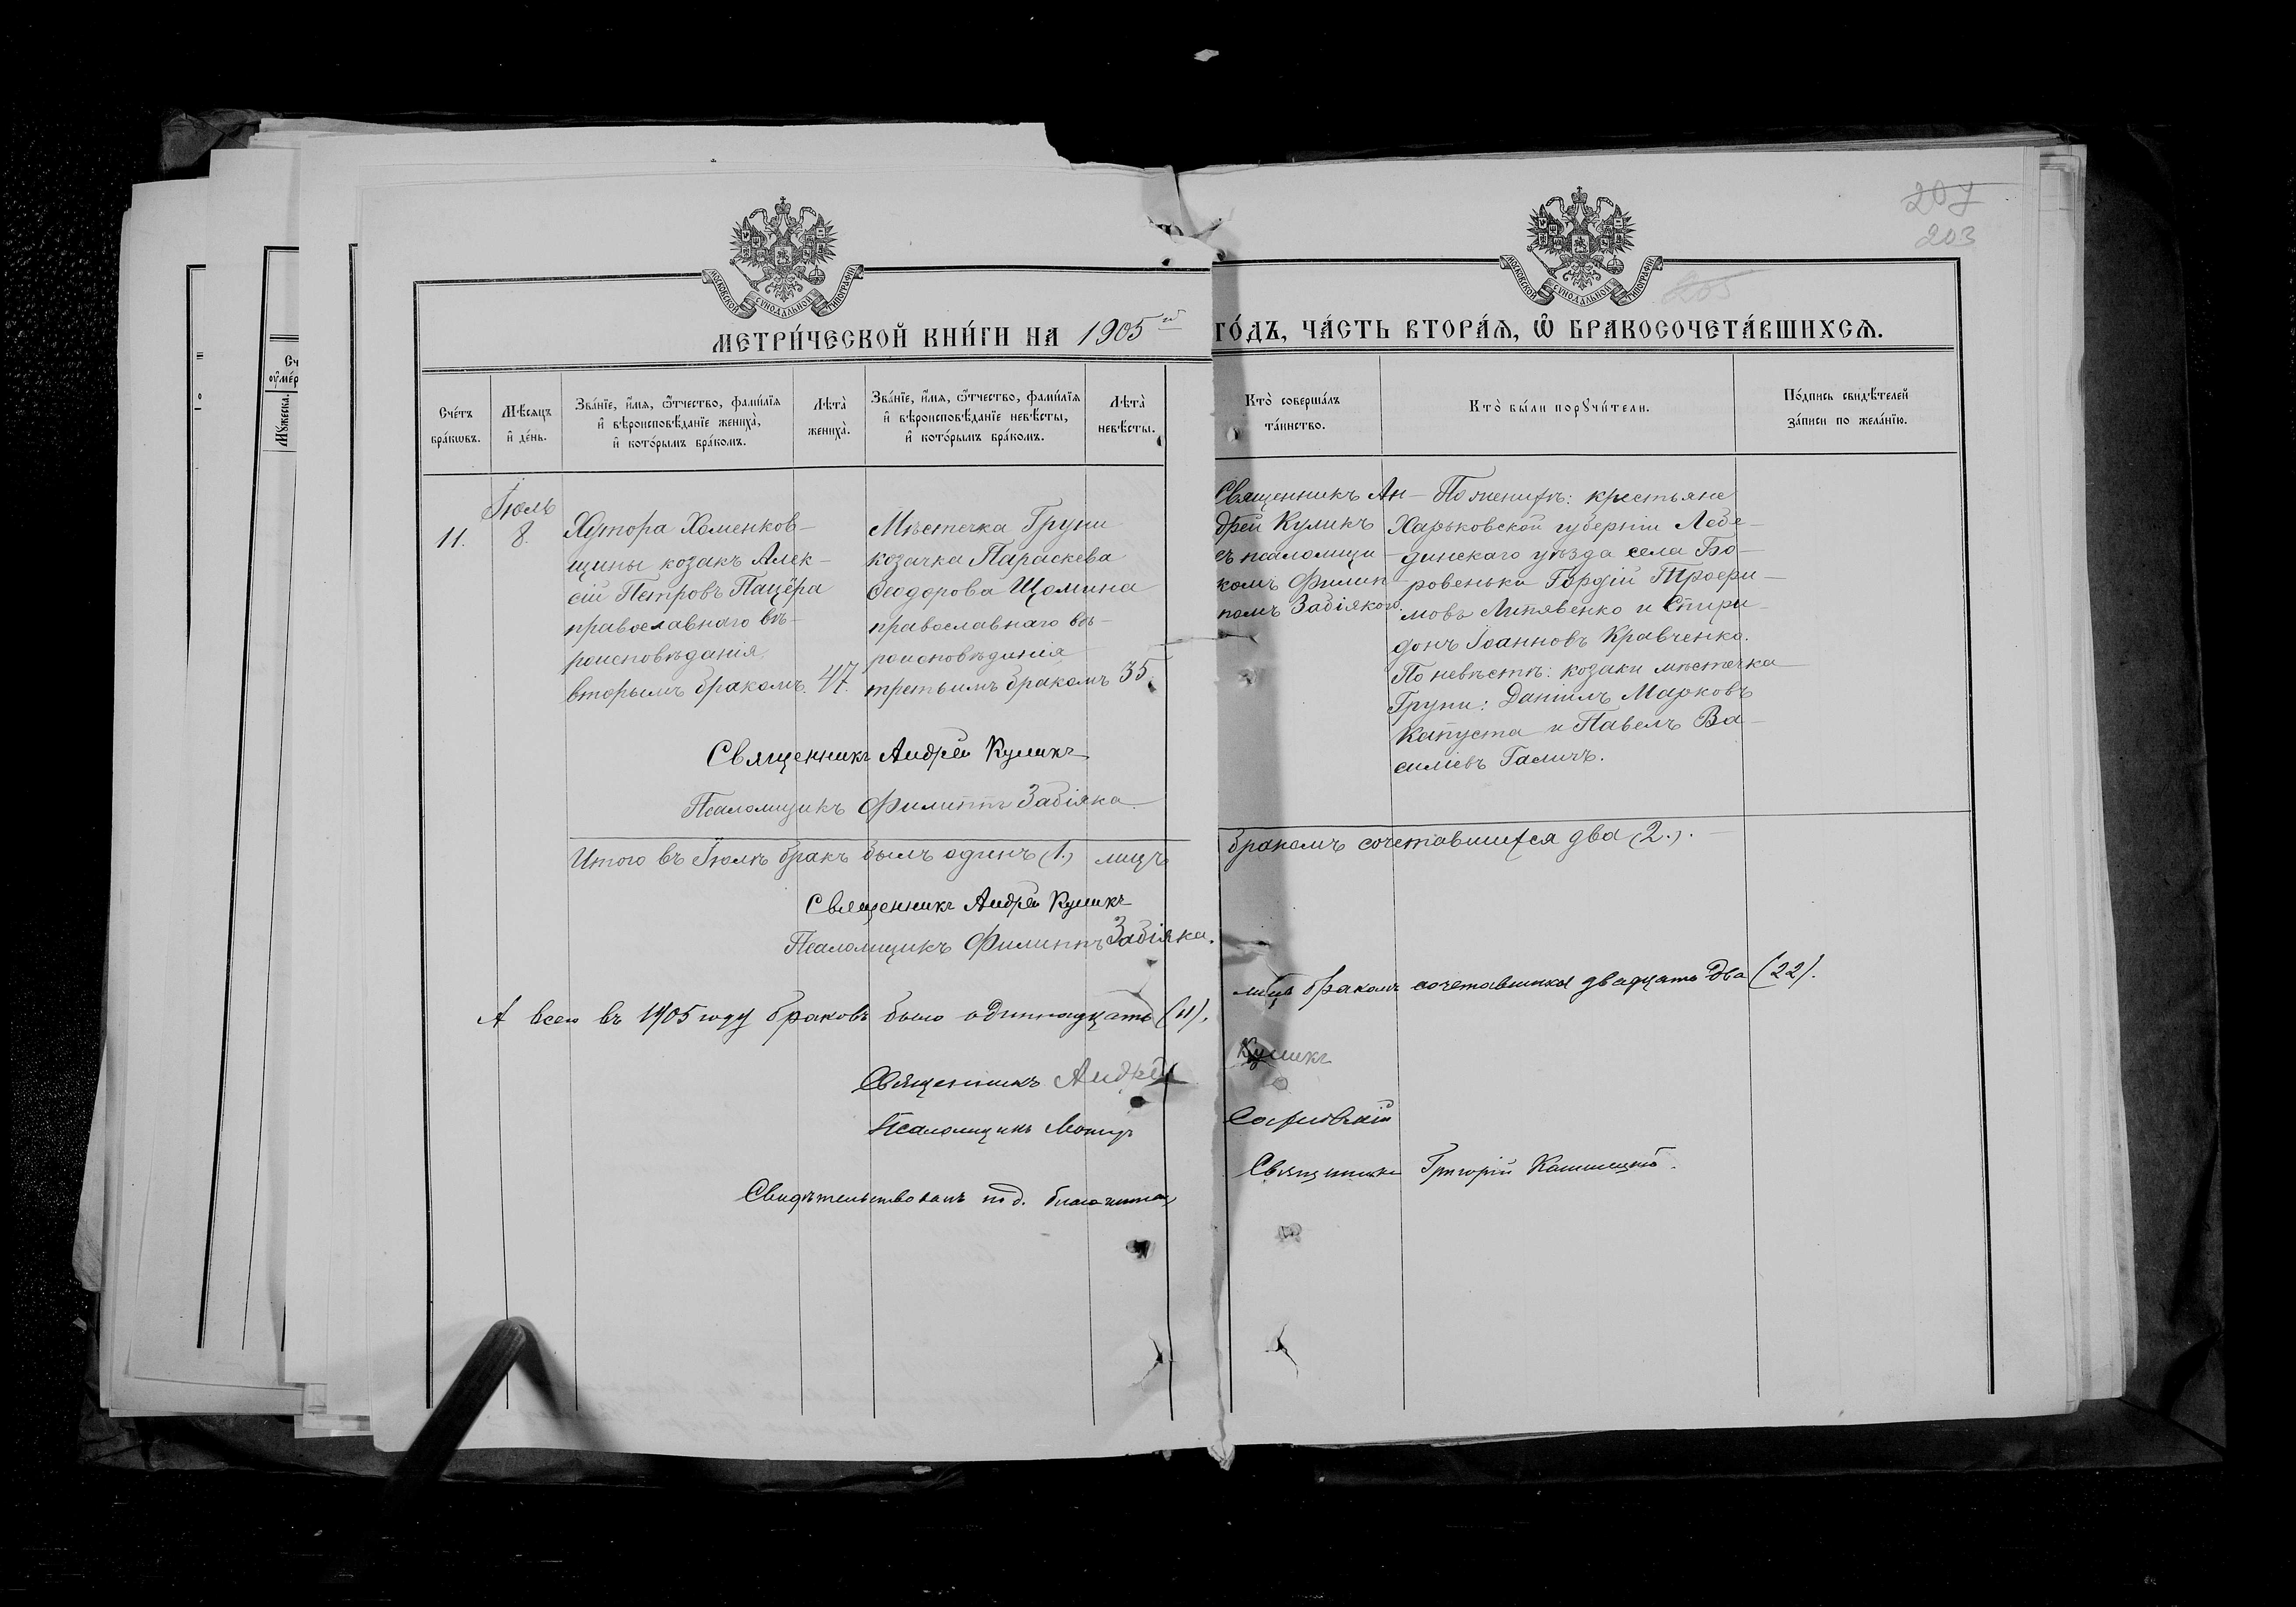 207
203
205
МОСКОВСКОЙ СѴНОДАЛЬНОЙ ТИПОГРАФІИ
МОСКОВСКОЙ СѴНОДАЛЬНОЙ ТИПОГРАФІИ
МЕТРИ́ЧЕСКОЙ КНИ́ГИ НА 1905 й ГО́ДЪ, ЧА́СТЬ ВТОРА́Ѧ, Ѽ БРАКОСОЧЕТА́ВШИХСѦ.
Сче́тъ бра́кωвъ.
Мѣ́сѧцъ и҆ де́нь.
Зва́нїе, и҆́мѧ, ѻ҆́тчество, фами́лїѧ и҆ вѣроисповѣ́данїе жениха̀, и҆ кото́рымъ бра́комъ.
Лѣта̀ жениха̀.
Зва́нїе, и҆́мѧ, ѻ҆́тчество, фами́лїѧ и҆ вѣроисповѣ́данїе невѣ́сты, и҆ кото́рымъ бра́комъ.
Лѣта̀ невѣ́сты.
Кто̀ соверша́лъ та́инство.
Кто̀ бы́ли порꙋчи́тели.
По́дпись свидѣ́телей за́писи по жела́нїю.
11.
Іюль
8.
Хутора Хоменков-
щины козакъ Алек-
сій Петровъ Пацёра
православнаго вѣ-
роисповѣданія
вторымъ бракомъ.
47.
Мѣстечка Груни
козачка Параскева
Ѳеодорова Щомина
православнаго вѣ-
роисповѣданія
третьимъ бракомъ
35.
Священникъ Ан-
дрей Куликъ
съ псаломщи-
комъ Филип-
помъ Забіякою.
По женихѣ: крестьяне
Харьковской губерніи Лебе-
динскаго уѣзда села Бо-
ровеньки Гордій Трофи-
мовъ Линявенко и Спири-
донъ Іоанновъ Кравченко.
По невѣстѣ: козаки мѣстечка
Груни: Даніилъ Марковъ
Капуста и Павелъ Ва-
силіевъ Галичъ.
Священникъ Андрей Куликъ
Псаломщикъ Филиппъ Забіяка
Итого въ Іюлѣ бракъ былъ одинъ (1.) лицъ бракомъ сочетавшихся два (2.).
Священникъ Андрей Куликъ
Псаломщикъ Филиппъ Забіяка.
А всего въ 1905 году браковъ было одиннадцать (11), лицъ бракомъ сочетавшихся двадцать два (22).
Священникъ Андрей Куликъ
Псаломщикъ
Свидѣтельствовалъ
Священникъ Григорій
Сч
оу҆мер
Мꙋжеска.